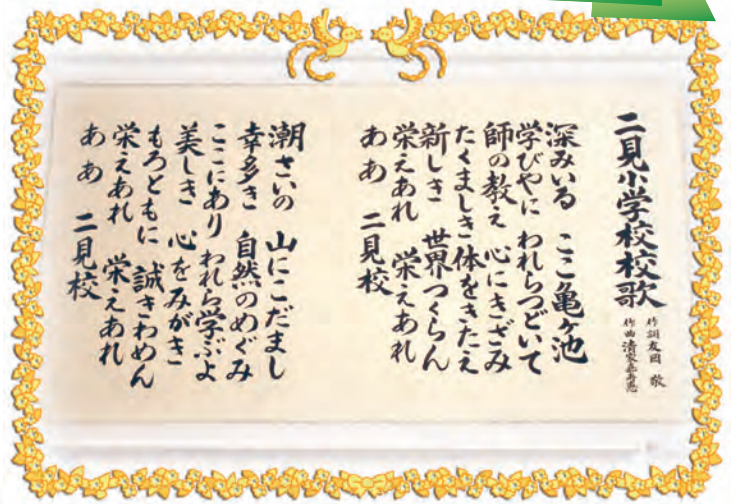 二見小学校校歌
作詞 友国 敬
作曲 清家
深みいる ここ亀ヶ池
学びやに われらつどいて
師の教え 心にきざみ
たくましき体をきたえ
新しき 世界つくらん
栄えあれ 栄えあれ
ああ 二見校
潮さいの 山にこだまし
幸多き 自然のめぐみ
ここにあり われら学ぶよ
美しき 心をみがき
もろともに 誠きわめん
栄えあれ 栄えあれ
ああ 二見校